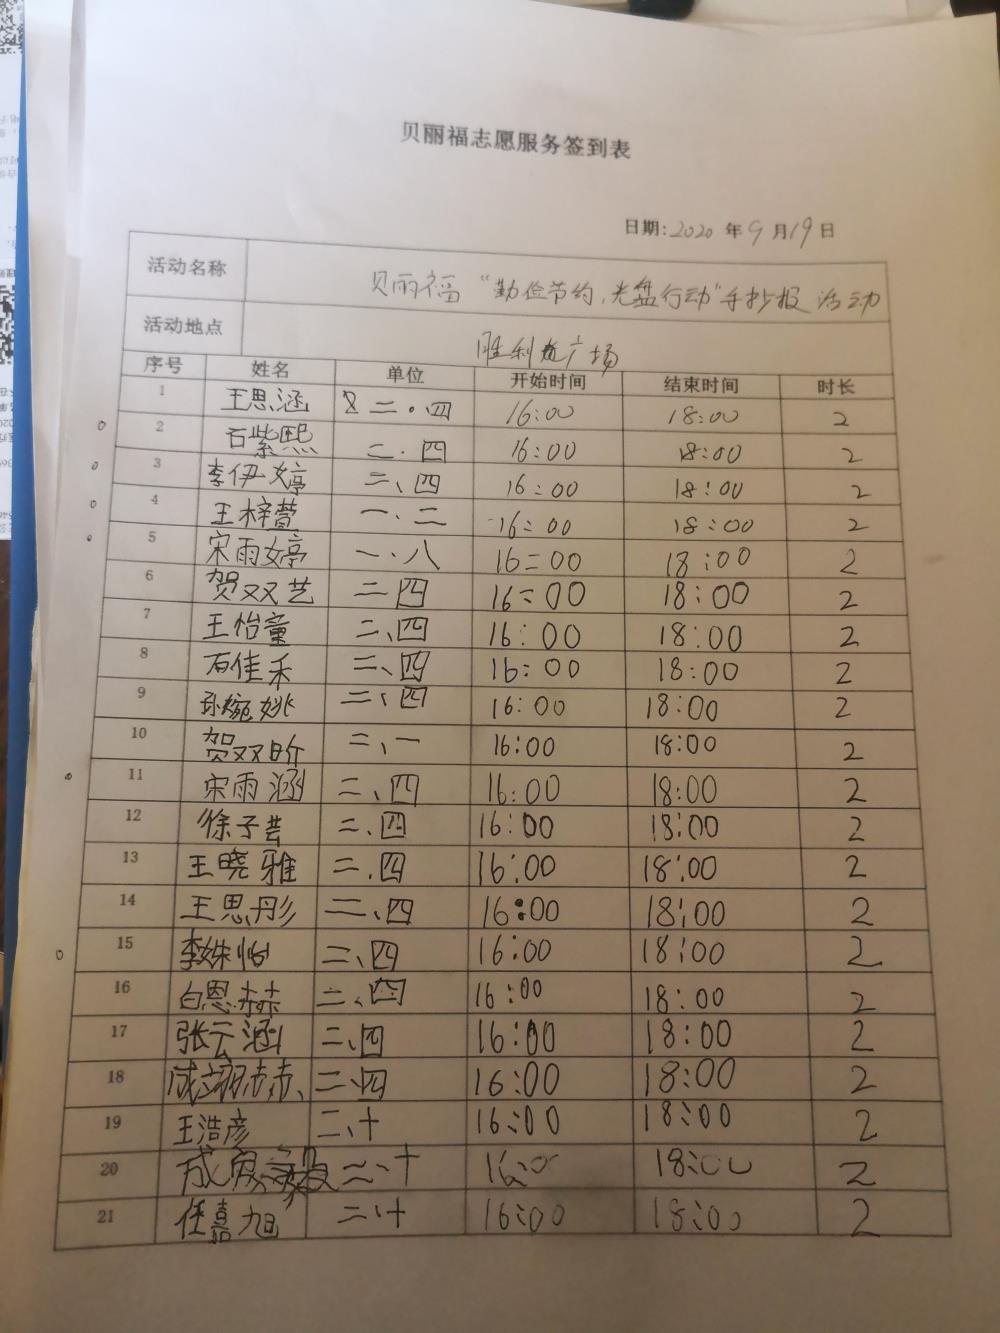 贝丽福志愿服务签到表
日期:2020年9月19日
活动名称 贝丽福“勤俭节约,光盘行动”手抄报活动
活动地点 胜利 广场
序号 姓名 单位 开始时间 结束时间 时长
1 王思涵 二.四 16:00 18:00 2
2 石紫熙 二.四 16:00 18:00 2
3 李伊婷 二、四 16:00 18:00 2
4 王梓萱 一.二 16:00 18:00 2
5 宋雨婷 一.八 16:00 18:00 2
6 贺双艺 二四 16:00 18:00 2
7 王怡童 二、四 16:00 18:00 2
8 石佳禾 二、四 16:00 18:00 2
9 孙婉姚 二、四 16:00 18:00 2
10 贺双昕 二、一 16:00 18:00 2
11 宋雨涵 二、四 16:00 18:00 2
12 徐子芸 二、四 16:00 18:00 2
13 王晓雅 二.四 16:00 18:00 2
14 王思彤 二、四 16:00 18:00 2
15 李姝怡 二、四 16:00 18:00 2
16 白恩赫 二、四 16:00 18:00 2
17 张云涵 二、四 16:00 18:00 2
18 二、四 16:00 18:00 2
19 王浩彦 二、十 16:00 18:00 2
20 二、十 18:00 2
21 任嘉旭 二、十 16:00 18:00 2